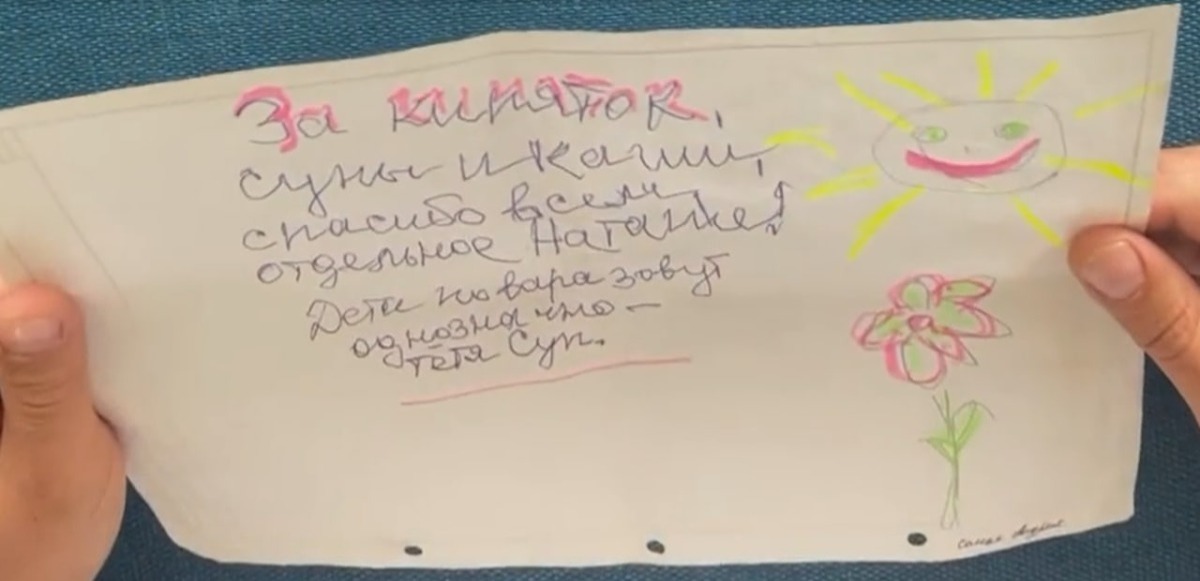 За кипяток,
супы и каши,
спасибо всем,
отдельное Наташке!
Дети повара зовут
однозначно –
тётя Суп.